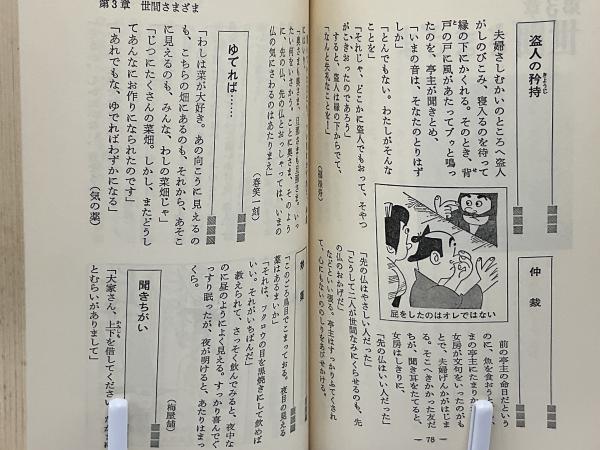 盗人の矜持
夫婦さしむかいのところへ盗人
がしのびこみ、寝入るのを待って
縁の下にかくれる。そのとき、背
戸の戸に風があたってブゥと鳴っ
たのを、亭主が聞きとめ、
「いまの音は、そなたのとりはず
しか」
「とんでもない。わたしがそんな
ことを」
「それじゃ、どこかに盗人でもおって、そやつ
がこきおったのであろう」
すると、盗人は縁の下からでて、
「なんと失礼なことを！」
屁をしたのはオレではない
仲裁
前の亭主の命日だという
のに、魚を食おう
まの亭主にたまりか
女房が文句をいったのがも
とで、夫婦げんかがはじま
る。そこへきかかった友だ
ちが、聞き耳をたてると、
女房はしきりに、
「先の仏はいい人だった」
「先の仏はやさしい人だった」
「こうして二人が世間なみにくらせるのも、先
の仏のおかげだ」
などといい張る。亭主はすっかりふてくされ
て、心にもないののしりをあびせかける。
— 78 —
第3章　世間さまざま
「奥さまも奥さま、旦那さまも旦那さま。いっ
たい何をいさかう。ことに奥さま、そのよう
に、先の仏、先の仏とおっしゃっては、いまの
仏の気にさわるのはあたりまえ」
（春笑一刻）
ゆでれば……
「わしは菜が大好き。あの向こうに見えるの
も、こちらの畑にあるのも、それから、あそこ
に見えるのも、みんな、わしの菜畑じゃ」
「じつにたくさんの菜畑。しかし、まただうし
てあんなにお作りになられたのです」
「あれでもな、ゆでればわずかになる」
（気の薬）
妙薬
「このごろ鳥目でこまっておる。夜目の見える
薬はあるまいか」
「それは、フクロウの目を黒焼きにして飲めば
いい。それがいちばんだ」
教えられて、さっそく飲んでみると、夜中な
のに昼のようによく見える。すっかり喜んでぐ
っすり眠ったが、夜が明けると、あたりはまっ
くら。
（梅屋舗）
聞きちがい
「大家さん、上下を借してください。
とむらいがありまして」